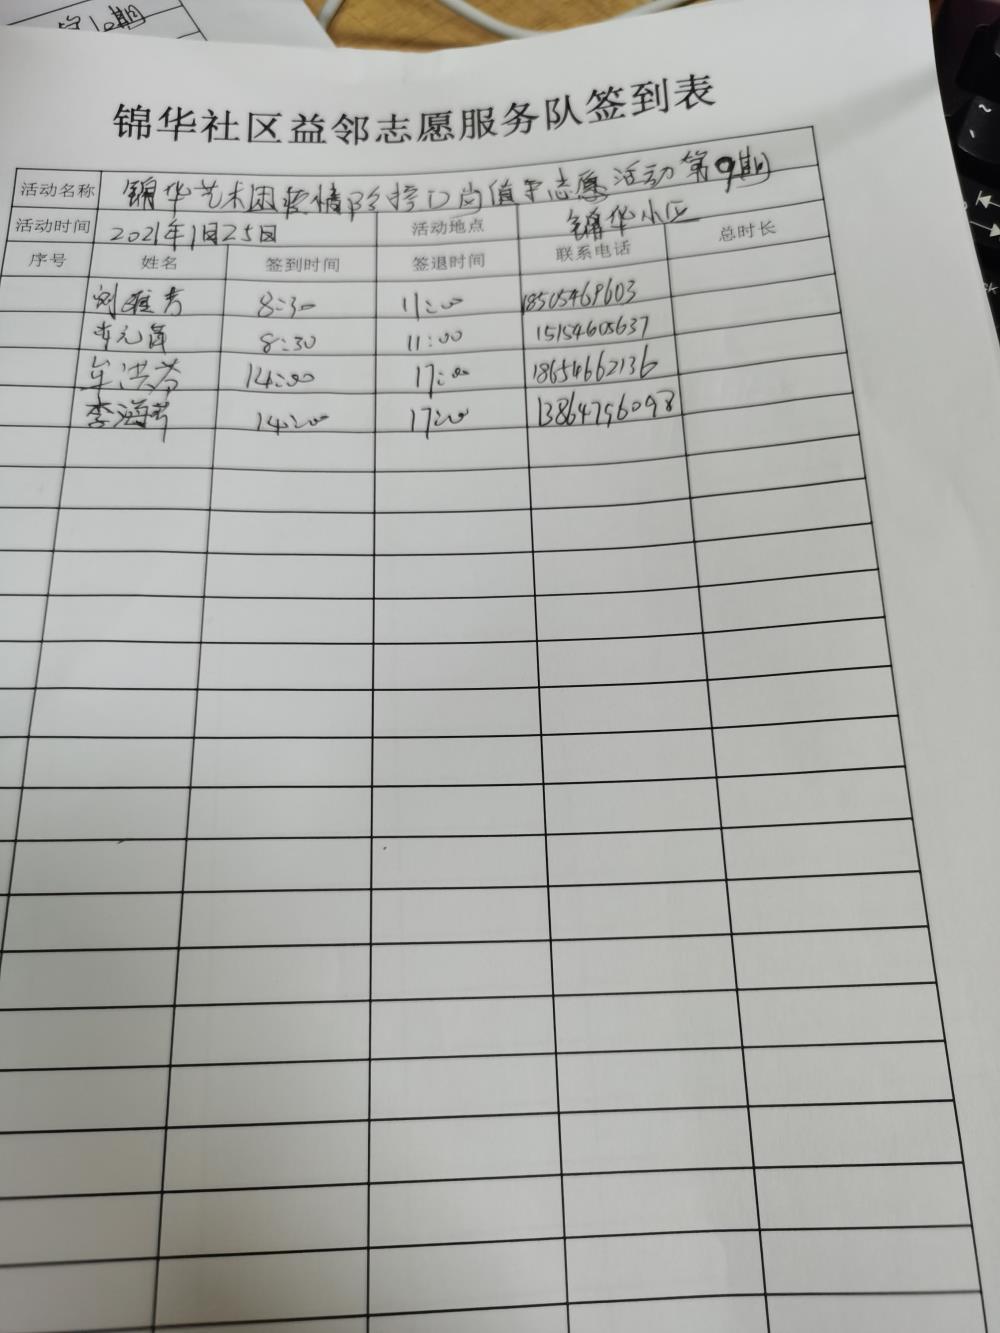 第10期
锦华社区益邻志愿服务队签到表
活动名称 锦华艺术团疫情防控门岗值守志愿活动第9期
活动时间 2021年1月25日 活动地点 锦华小区
序号 姓名 签到时间 签退时间 联系电话 总时长
刘雅芳 8:30 11:00 18505469603
8:30 11:00 15154605637
牟洪芳 14:00 17:00 18654662136
李海芹 14:00 17:00 13864796098